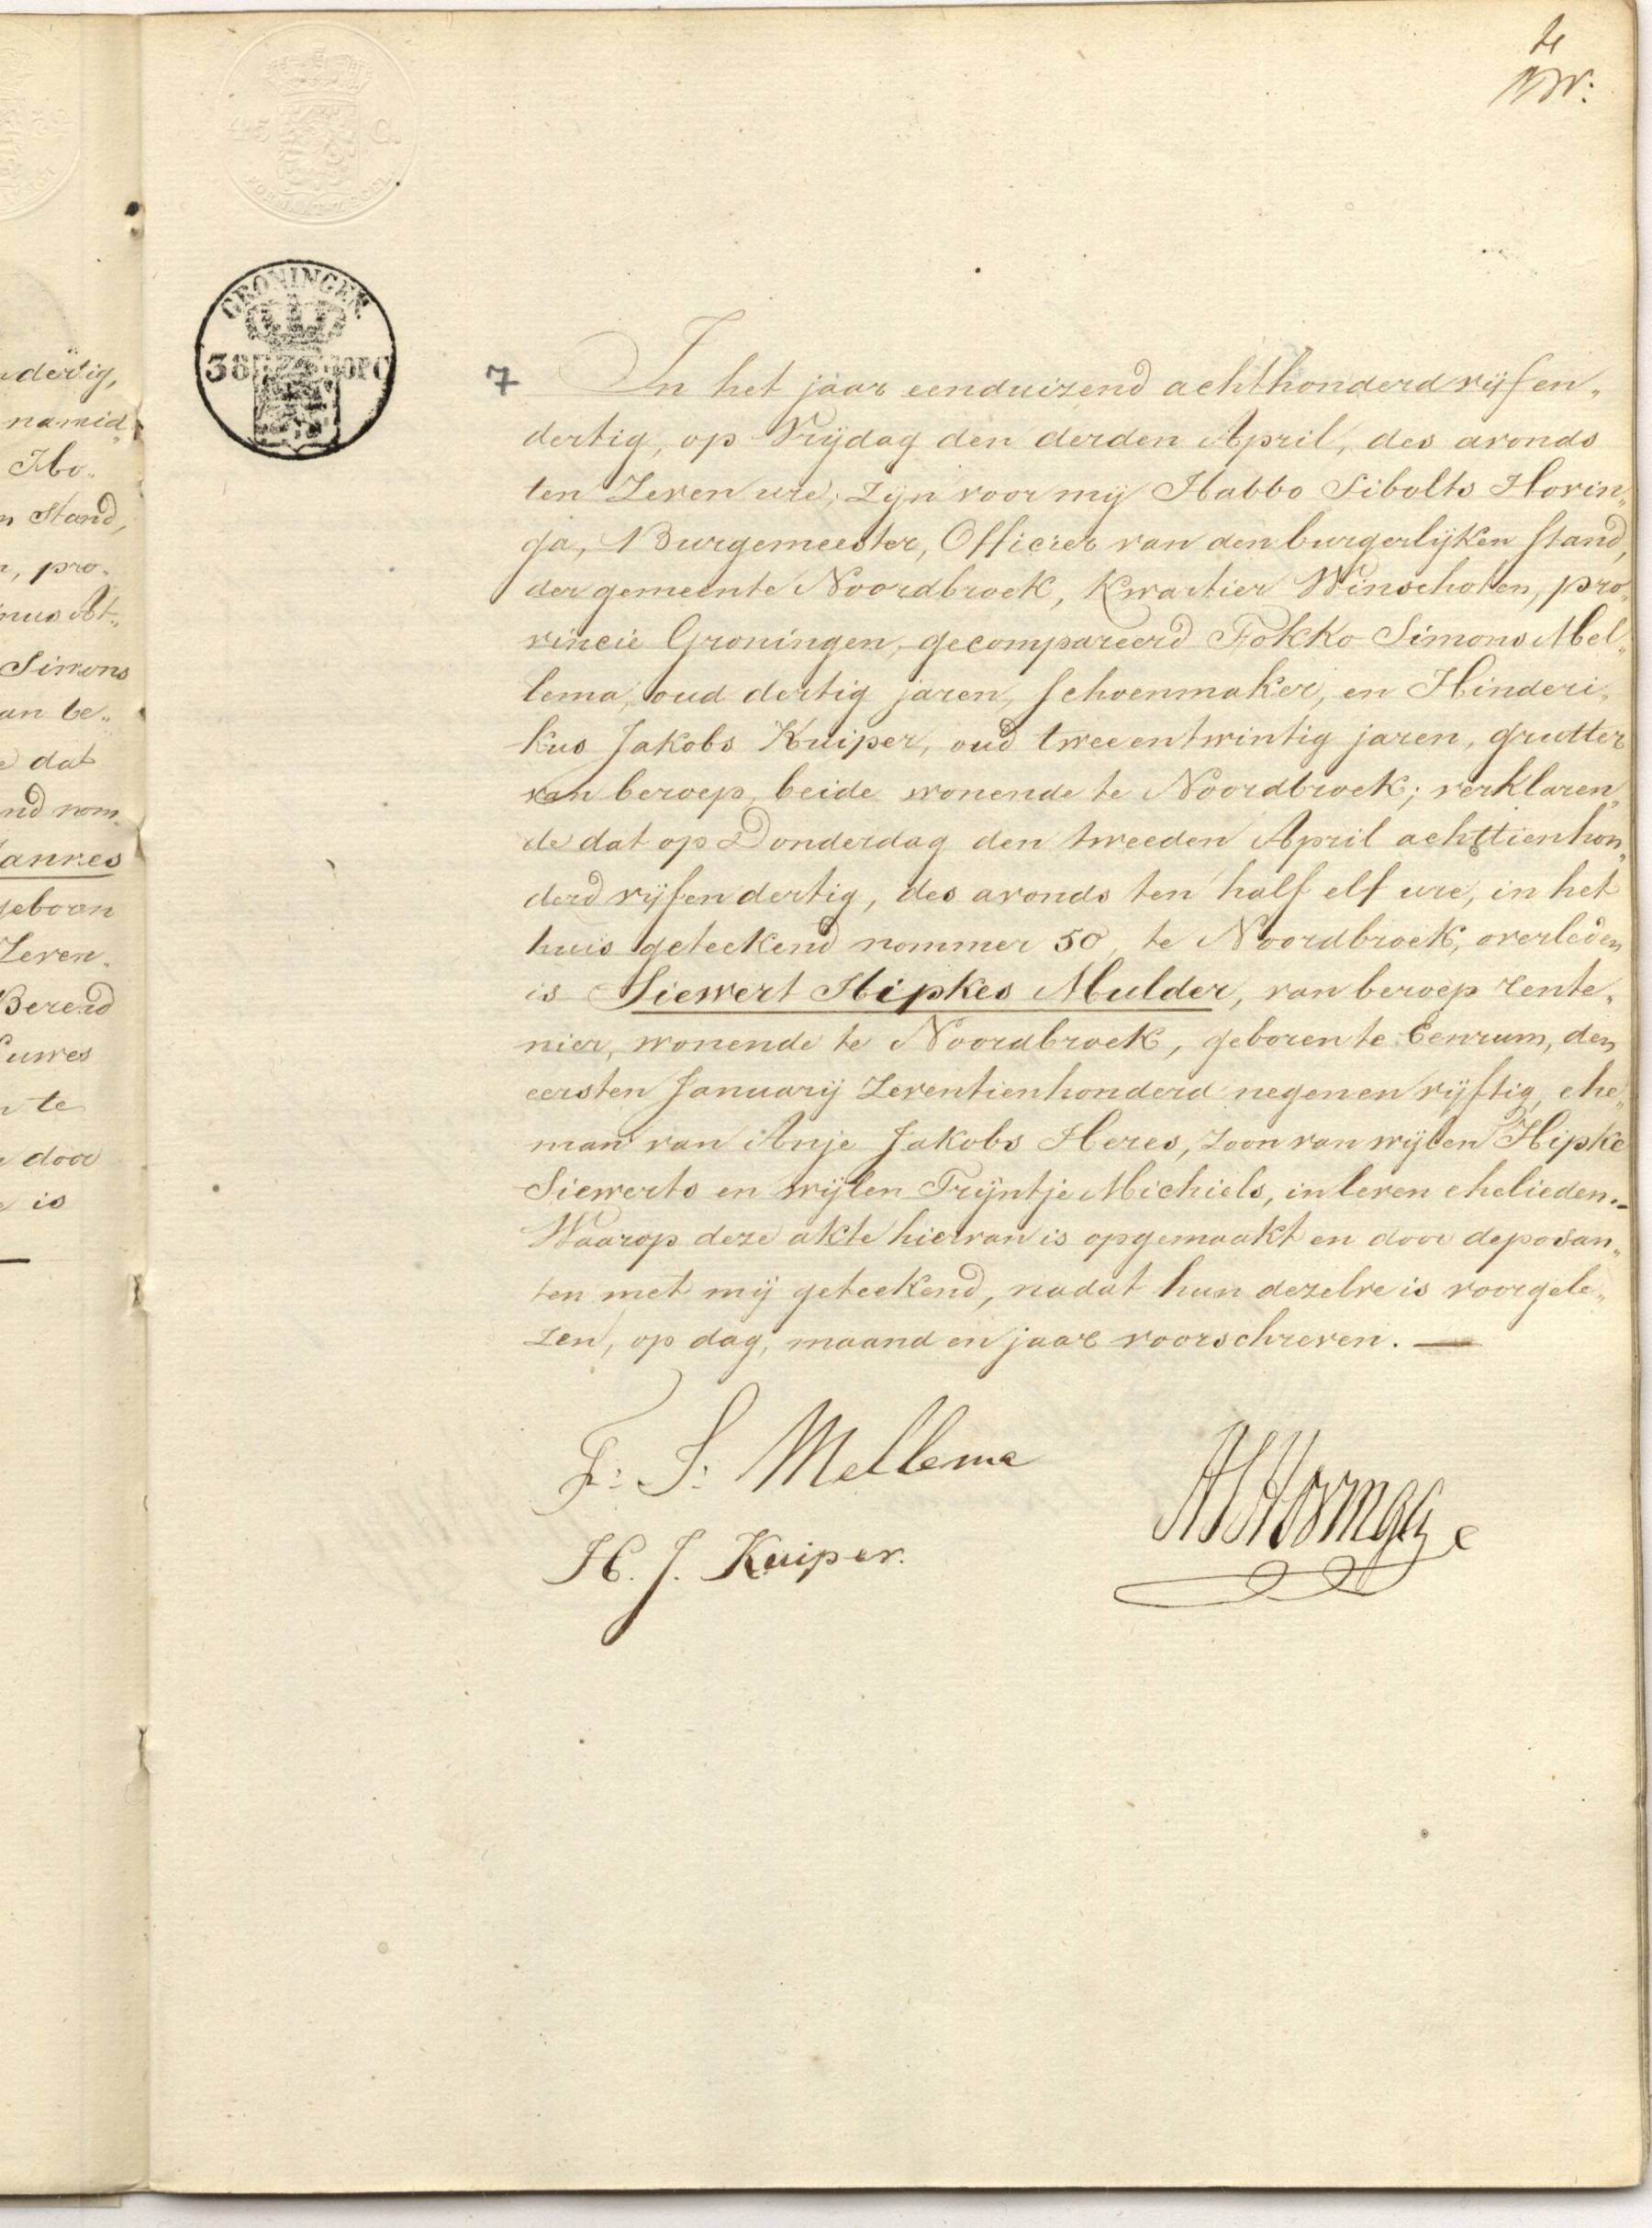 te
45 C.
GRONINGEN
38 OPC
7 In het jaar eenduizend achthonderd vijfen„
dertig, op Vrijdag den derden April, des avonds
ten Zeven ure, zijn voor mij Habbo Sibolts Hovin„
ga, Burgemeester, Officier van den burgerlijken stand,
der gemeente Noordbroek, Kwartier Winschoten, pro„
vincie Groningen, gecompareerd Fokko Simons Mel„
lema, oud dertig jaren, schoenmaker, en Hinderi„
kus Jakobs Kuiper, oud tweeentwintig jaren, grutter
van beroep, beide wonende te Noordbroek; verklaren„
de dat op Donderdag den tweeden April achttienhon„
derd vijfendertig, des avonds ten half elf ure, in het
huis geteekend nommer 50, te Noordbroek, overleden
is Siewert Hipkes Mulder, van beroep rente„
nier, wonende te Noordbroek, geboren te Eenrum, den
eersten Januarij Zeventienhonderd negenenvijftig, ehe„
man van Anje Jakobs Heres, zoon van wijlen Hipke
Siewerts en wijlen Trijntje Michiels, in leven ehelieden.–
Waarop deze akte hiervan is opgemaakt en door deposan„
ten met mij geteekend, nadat hun dezelve is voorgele„
zen, op dag, maand en jaar voorschreven. —
F: S: Mellema
HSHovinga
H. J. Kuiper.
dertig,
namid„
Ho„
n Stand,
, pro„
nus At„
Simons
an be„
e dat
nd nom„
annes
geboren
Zeven„
Berend
uwes
n te
door
e is